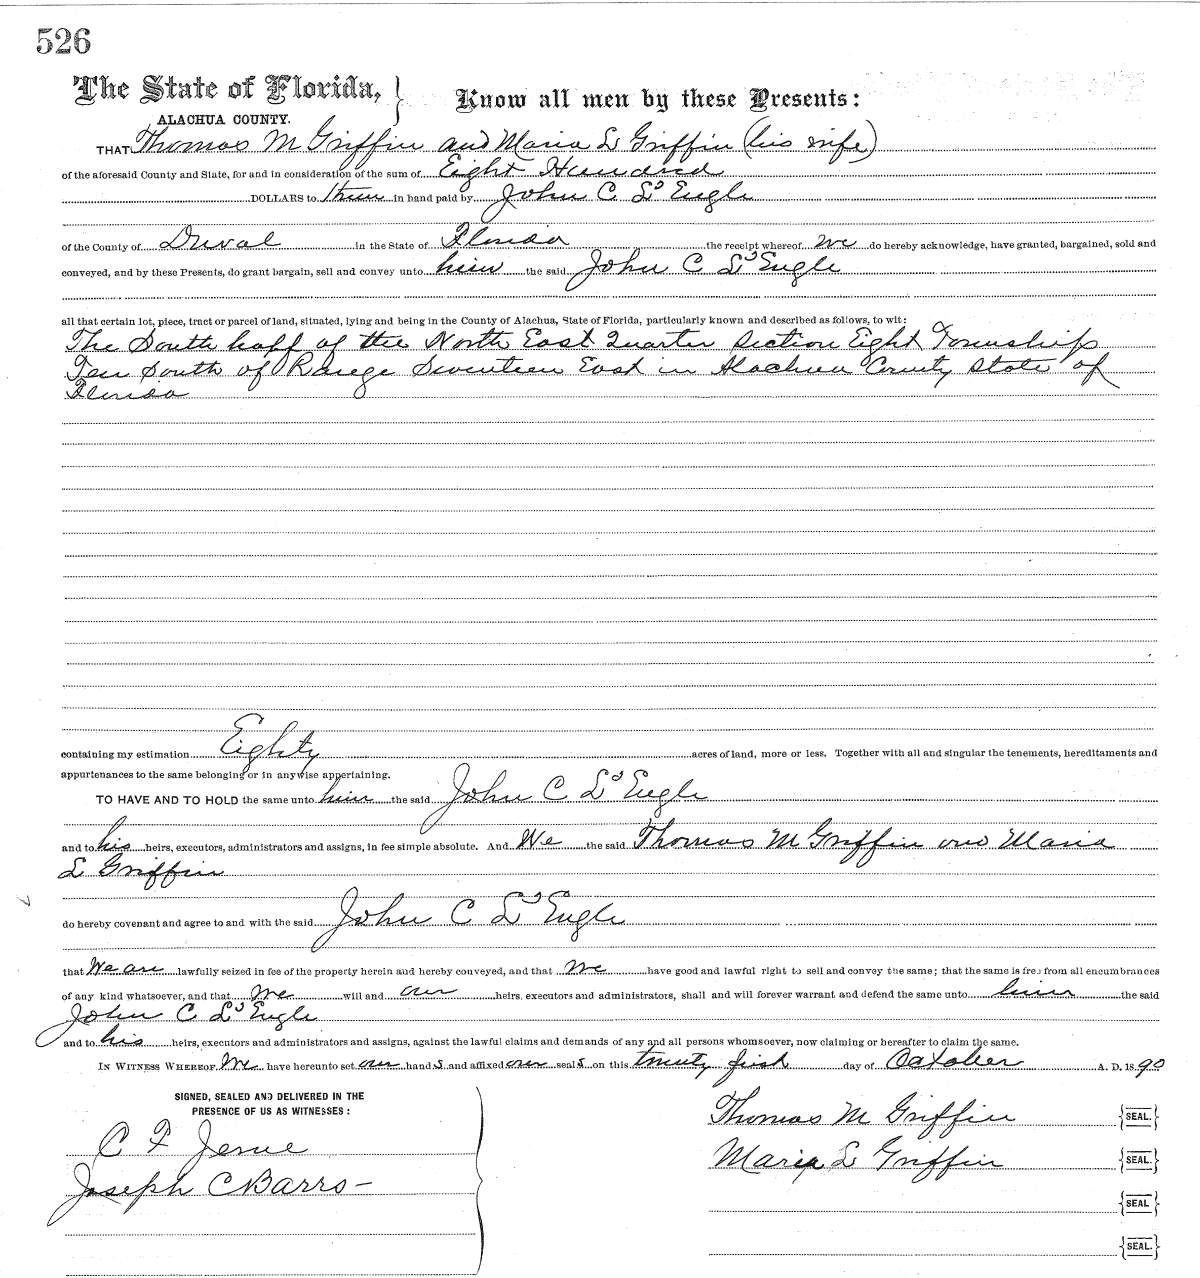 526
The State of Florida,
ALACHUA COUNTY.
Know all men by these Presents:
THAT Thomas M Griffin and Maria L Griffin (his wife)
of the aforesaid County and State, for and in consideration of the sum of Eight Hundred
DOLLARS to them in hand paid by John C L'Engle
of the County of Duval in the State of Florida the receipt whereof we do hereby acknowledge, have granted, bargained, sold and
conveyed, and by these Presents, do grant bargain, sell and convey unto him the said John C L'Engle
all that certain lot, piece, tract or parcel of land, situated, lying and being in the County of Alachua, State of Florida, particularly known and described as follows, to wit:
The South half of the North East Quarter Section Eight Township
Ten South of Range Seventeen East in Alachua County State of
Florida
containing my estimation Eighty acres of land, more or less. Together with all and singular the tenements, hereditaments and
appurtenances to the same belonging or in anywise appertaining.
TO HAVE AND TO HOLD the same unto him the said John C L'Engle
and to his heirs, executors, administrators and assigns, in fee simple absolute. And We the said Thomas M Griffin and Maria
L Griffin
do hereby covenant and agree to and with the said John C L'Engle
that We are lawfully seized in fee of the property herein and hereby conveyed, and that we have good and lawful right to sell and convey the same; that the same is free from all encumbrances
of any kind whatsoever, and that we will and our heirs, executors and administrators, shall and will forever warrant and defend the same unto him the said
John C L'Engle
and to his heirs, executors and administrators and assigns, against the lawful claims and demands of any and all persons whomsoever, now claiming or hereafter to claim the same.
IN WITNESS WHEREOF We have hereunto set our hands and affixed our seals on this twenty first day of October A. D. 1890
SIGNED, SEALED AND DELIVERED IN THE
PRESENCE OF US AS WITNESSES:
C F
Joseph C Barrs
Thomas M Griffin SEAL.
Maria L Griffin SEAL.
SEAL
SEAL.